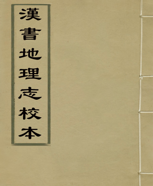 漢書地理志校本